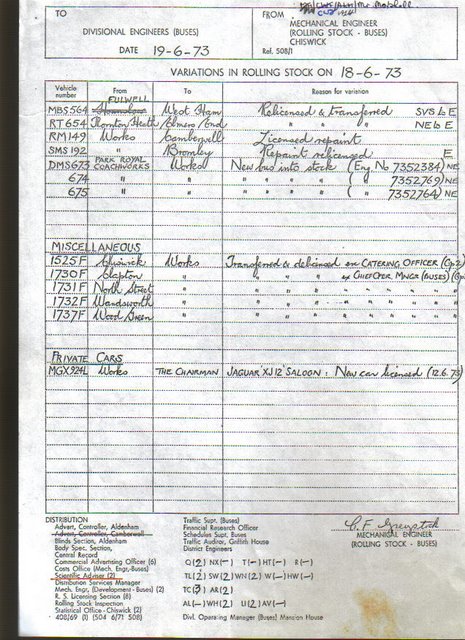 TO
DIVISIONAL ENGINEERS (BUSES)
DATE 19-6-73
FROM
MECHANICAL ENGINEER
(ROLLING STOCK - BUSES)
CHISWICK
Ref. 508/1
VARIATIONS IN ROLLING STOCK ON 18-6-73
Vehicle number From To Reason for variation
FULWELL
MBS564 West Ham Relicensed & transferred SVS to E
RT654 Thornton Heath Elmers End " " " NE to E
RM149 Works Camberwell Licensed repaint
SMS192 " Bromley Repaint relicensed E
DMS673 PARK ROYAL COACHWORKS Works New bus into stock (Eng. No 7352384) NE
674 " " " " " " ( " 7352769) NE
675 " " " " " " ( " 7352764) NE
MISCELLANEOUS
1525F Chiswick Works Transferred & delicensed ex CATERING OFFICER (Gp2)
1730F Clapton " " " " ex CHIEF OPER MNGR (BUSES)
1731F North Street " " " " " " " "
1732F Wandsworth " " " " " " " "
1737F Wood Green " " " " " " " "
PRIVATE CARS
MGX924L Works THE CHAIRMAN JAGUAR XJ12 SALOON : New car licensed (12.6.73)
DISTRIBUTION
Advert, Controller, Aldenham
Advert, Controller, Camberwell
Blinds Section, Aldenham
Body Spec, Section,
Central Record
Commercial Advertising Officer (6)
Costs Office (Mech. Engr.-Buses)
Scientific Adviser (2)
Distribution Services Manager
Mech. Engr, (Development - Buses) (2)
R. S. Licensing Section (8)
Rolling Stock Inspection
Statistical Office - Chiswick (2)
408/69 (1) (504 6/71 508)
Traffic Supt. (Buses)
Financial Research Officer
Schedules Supt. Buses
Traffic Auditor, Griffith House
District Engineers
Q(2) NX(-) T(-) HT(-) R(-)
TL(2) SW(2) WN(2) W(-) HW(-)
TC(3) AR(2)
AL(-) WH(2) U(2) AV(-)
Divl. Operating Manager (Buses) Mansion House
MECHANICAL ENGINEER
(ROLLING STOCK - BUSES)